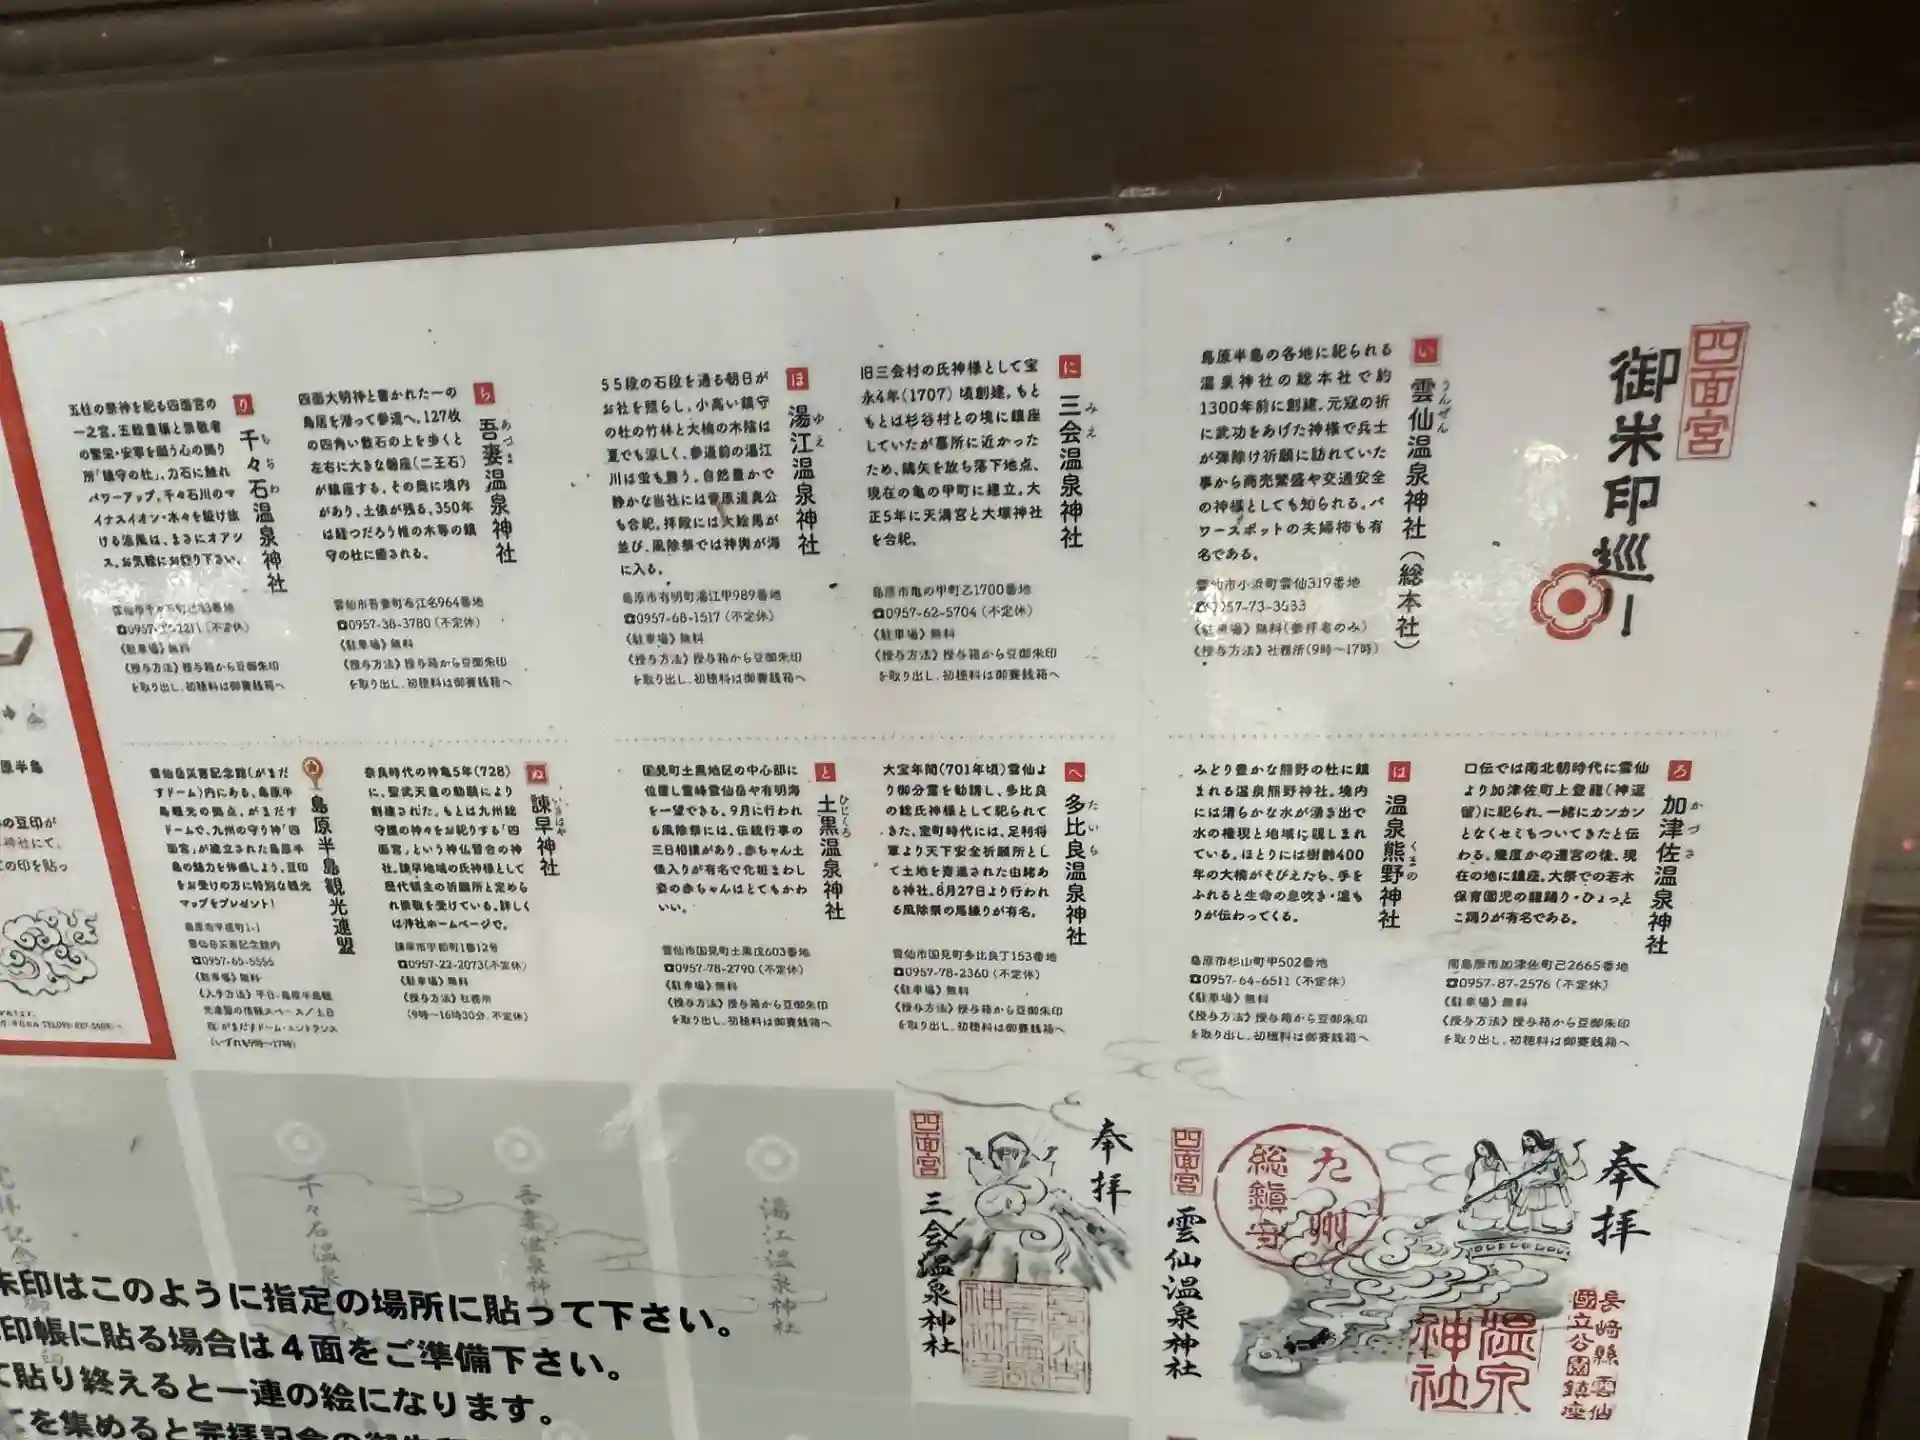 四面宮
御朱印巡り
い
雲仙温泉神社(総本社)
うんぜん
島原半島の各地に祀られる
温泉神社の総本社で約
1300年前に創建。元寇の折
に武功をあげた神様で兵士
が弾除け祈願に訪れていた
事から商売繁盛や交通安全
の神様としても知られる。パ
ワースポットの夫婦柿も有
名である。
雲仙市小浜町雲仙319番地
《駐車場》無料(参拝者のみ)
《授与方法》社務所(9時～17時)
に
三会温泉神社
みえ
旧三会村の氏神様として宝
永4年(1707)頃創建。もと
もとは杉谷村との境に鎮座
していたが墓所に近かった
ため、鏑矢を放ち落下地点、
現在の亀の甲町に建立。大
正5年に天満宮と大塚神社
を合祀。
島原市亀の甲町乙1700番地
☎0957-62-5704(不定休)
《駐車場》無料
《授与方法》授与箱から豆御朱印
を取り出し、初穂料は御賽銭箱へ
ほ
湯江温泉神社
ゆえ
55段の石段を通る朝日が
お社を照らし、小高い鎮守
の杜の竹林と大楠の木陰は
夏でも涼しく、参道前の湯江
川は蛍も舞う。自然豊かで
静かな当社には菅原道真公
も合祀。拝殿には大絵馬が
並び、風除祭では神輿が海
に入る。
島原市有明町湯江甲989番地
☎0957-68-1517(不定休)
《駐車場》無料
《授与方法》授与箱から豆御朱印
を取り出し、初穂料は御賽銭箱へ
ら
吾妻温泉神社
あづま
四面大明神と書かれた一の
鳥居を潜って参道へ。127枚
の四角い敷石の上を歩くと
左右に大きな磐座(二王石)
が鎮座する。その奥に境内
があり、土俵が残る。350年
は経つだろう椎の木等の鎮
守の杜に癒される。
雲仙市吾妻町布江名964番地
☎0957-38-3780(不定休)
《駐車場》無料
《授与方法》授与箱から豆御朱印
を取り出し、初穂料は御賽銭箱へ
り
千々石温泉神社
ちぢわ
五柱の祭神を祀る四面宮の
一之宮。五穀豊穣と崇敬者
の繁栄・安寧を願う心の拠り
所「鎮守の杜」。力石に触れ
パワーアップ。千々石川のマ
イナスイオン・木々を駆け抜
ける涼風は、まさにオアシ
ス。お気軽にお参り下さい。
《駐車場》無料
《授与方法》授与箱から豆御朱印
を取り出し、初穂料は御賽銭箱へ
ろ
加津佐温泉神社
かづさ
口伝では南北朝時代に雲仙
より加津佐町上登龍(神逗
留)に祀られ、一緒にカンカン
となくセミもついてきたと伝
わる。幾度かの遷宮の後、現
在の地に鎮座。大祭での若木
保育園児の龍踊り・ひょっと
こ踊りが有名である。
南島原市加津佐町己2665番地
☎0957-87-2576(不定休)
《駐車場》無料
《授与方法》授与箱から豆御朱印
を取り出し、初穂料は御賽銭箱へ
は
温泉熊野神社
くまの
みどり豊かな熊野の杜に鎮
まれる温泉熊野神社。境内
には清らかな水が湧き出で
水の権現と地域に親しまれ
ている。ほとりには樹齢400
年の大楠がそびえたち、手を
ふれると生命の息吹き・温も
りが伝わってくる。
島原市杉山町甲502番地
☎0957-64-6511(不定休)
《駐車場》無料
《授与方法》授与箱から豆御朱印
を取り出し、初穂料は御賽銭箱へ
へ
多比良温泉神社
たいら
大宝年間(701年頃)雲仙よ
り御分霊を勧請し、多比良
の総氏神様として祀られて
きた。室町時代には、足利将
軍より天下安全祈願所とし
て土地を寄進された由緒あ
る神社。8月27日より行われ
る風除祭の馬練りが有名。
雲仙市国見町多比良丁153番地
☎0957-78-2360(不定休)
《駐車場》無料
《授与方法》授与箱から豆御朱印
を取り出し、初穂料は御賽銭箱へ
と
土黒温泉神社
ひじくろ
国見町土黒地区の中心部に
位置し霊峰雲仙岳や有明海
を一望できる。9月に行われ
る風除祭には、伝統行事の
三日相撲があり、赤ちゃん土
俵入りが有名で化粧まわし
姿の赤ちゃんはとてもかわ
いい。
雲仙市国見町土黒戊603番地
☎0957-78-2790(不定休)
《駐車場》無料
《授与方法》授与箱から豆御朱印
を取り出し、初穂料は御賽銭箱へ
ぬ
諫早神社
いさはや
奈良時代の神亀5年(728)
に、聖武天皇の勅願により
創建された。もとは九州総
守護の神々をお祀りする「四
面宮」という神仏習合の神
社。諫早地域の氏神様として
歴代領主の祈願所と定めら
れ崇敬を受けている。詳しく
は神社ホームページで。
諫早市宇都町1番12号
☎0957-22-2073(不定休)
《駐車場》無料
《授与方法》社務所
(9時～16時30分、不定休)
島原半島観光連盟
雲仙岳災害記念館(がまだ
すドーム)内にある、島原半
島観光の拠点。がまだす
ドームで、九州の守り神「四
面宮」が建立された島原半
島の魅力を体感しよう。豆印
をお受けの方に特別な観光
マップをプレゼント!
島原市平成町1-1
雲仙岳災害記念館内
☎0957-65-5555
《駐車場》無料
《入手方法》平日、島原半島観
光連盟の情報スペース/土日
祝、がまだすドーム・エントランス
(いずれも9時～17時)
奉拝
雲仙温泉神社
四面宮
九州
総鎮守
温泉
神社
長崎縣雲仙
國立公園鎮座
奉拝
四面宮
三会温泉神社
湯江温泉神社
吾妻温泉神社
千々石温泉神社
朱印はこのように指定の場所に貼って下さい。
印帳に貼る場合は4面をご準備下さい。
て貼り終えると一連の絵になります。